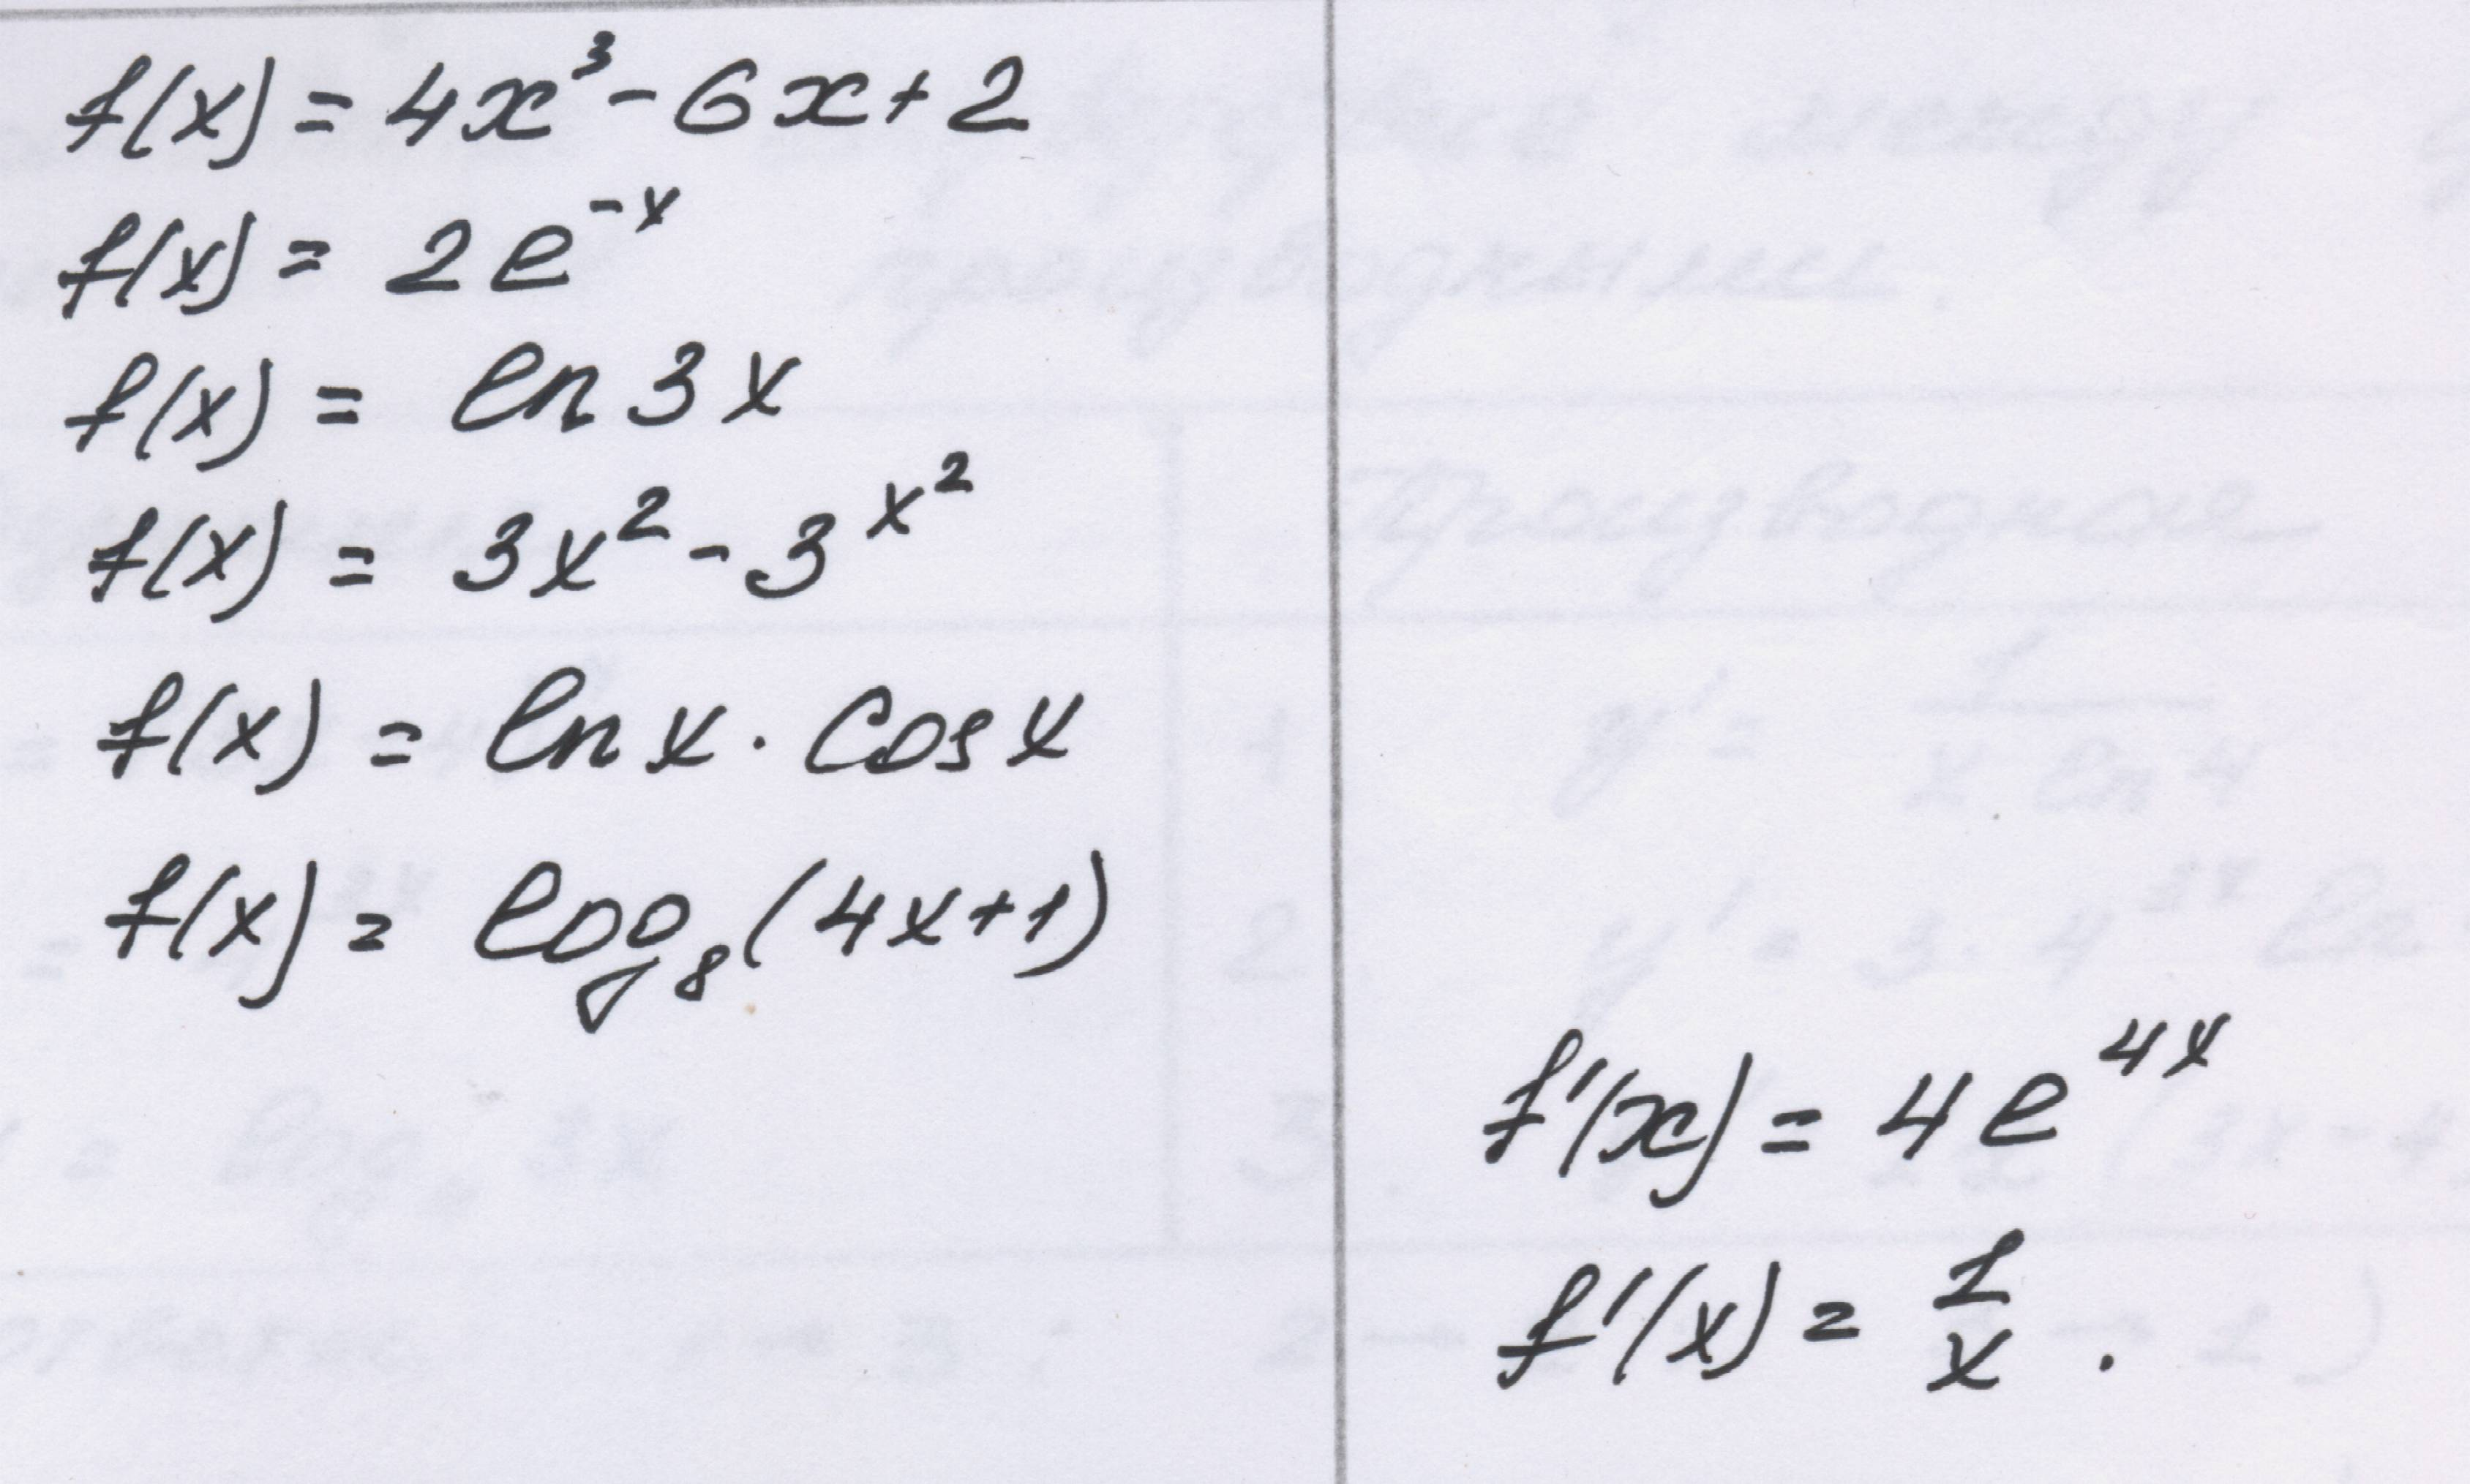 f(x) = 4x³ - 6x + 2
f(x) = 2e⁻ˣ
f(x) = ln 3x
f(x) = 3x² - 3^x²
f(x) = ln x · cos x
f(x) = log₈(4x+1)
f'(x) = 4e⁴ˣ
f'(x) = 1/x .